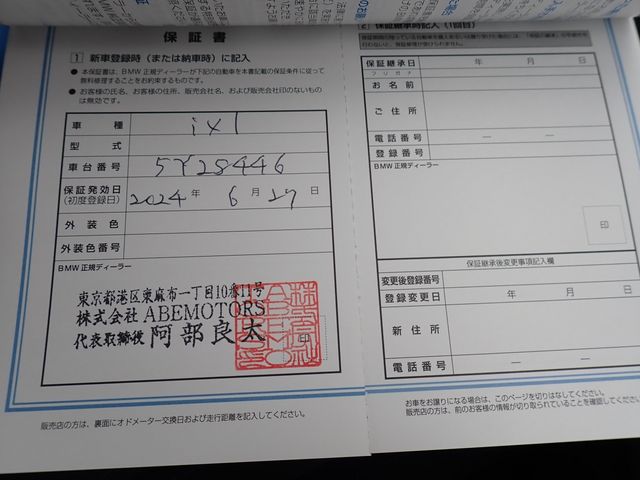 保証書
1 新車登録時（または納車時）に記入
● 本保証書は、BMW 正規ディーラーが下記の自動車を本書記載の保証条件に従って
無料修理することをお約束するものです。
● お客様の氏名、お客様の住所、販売会社名、および販売会社印のないもの
は無効です。
車種 ix1
型式
車台番号 5Y28446
保証発効日 2024 年 6 月 27 日
(初度登録日)
外装色
外装色番号
BMW 正規ディーラー
東京都港区東麻布一丁目10番11号
株式会社 ABEMOTORS
代表取締役 阿部良太
印
販売店の方は、裏面にオドメーター交換日および走行距離を記入してください。
保証継承時記入（1回目）
保証継承日 年 月 日
フリガナ
お名前
ご住所
電話番号 ー ー
登録番号
BMW 正規ディーラー
印
保証継承後変更事項記入欄
変更後登録番号
登録変更日 年 月 日
新住所
電話番号 ー ー
お車をお譲りになる場合は、このページを切りはなしてください。
販売店の方は、前のお客様の情報が切り取られていることを確認してください。